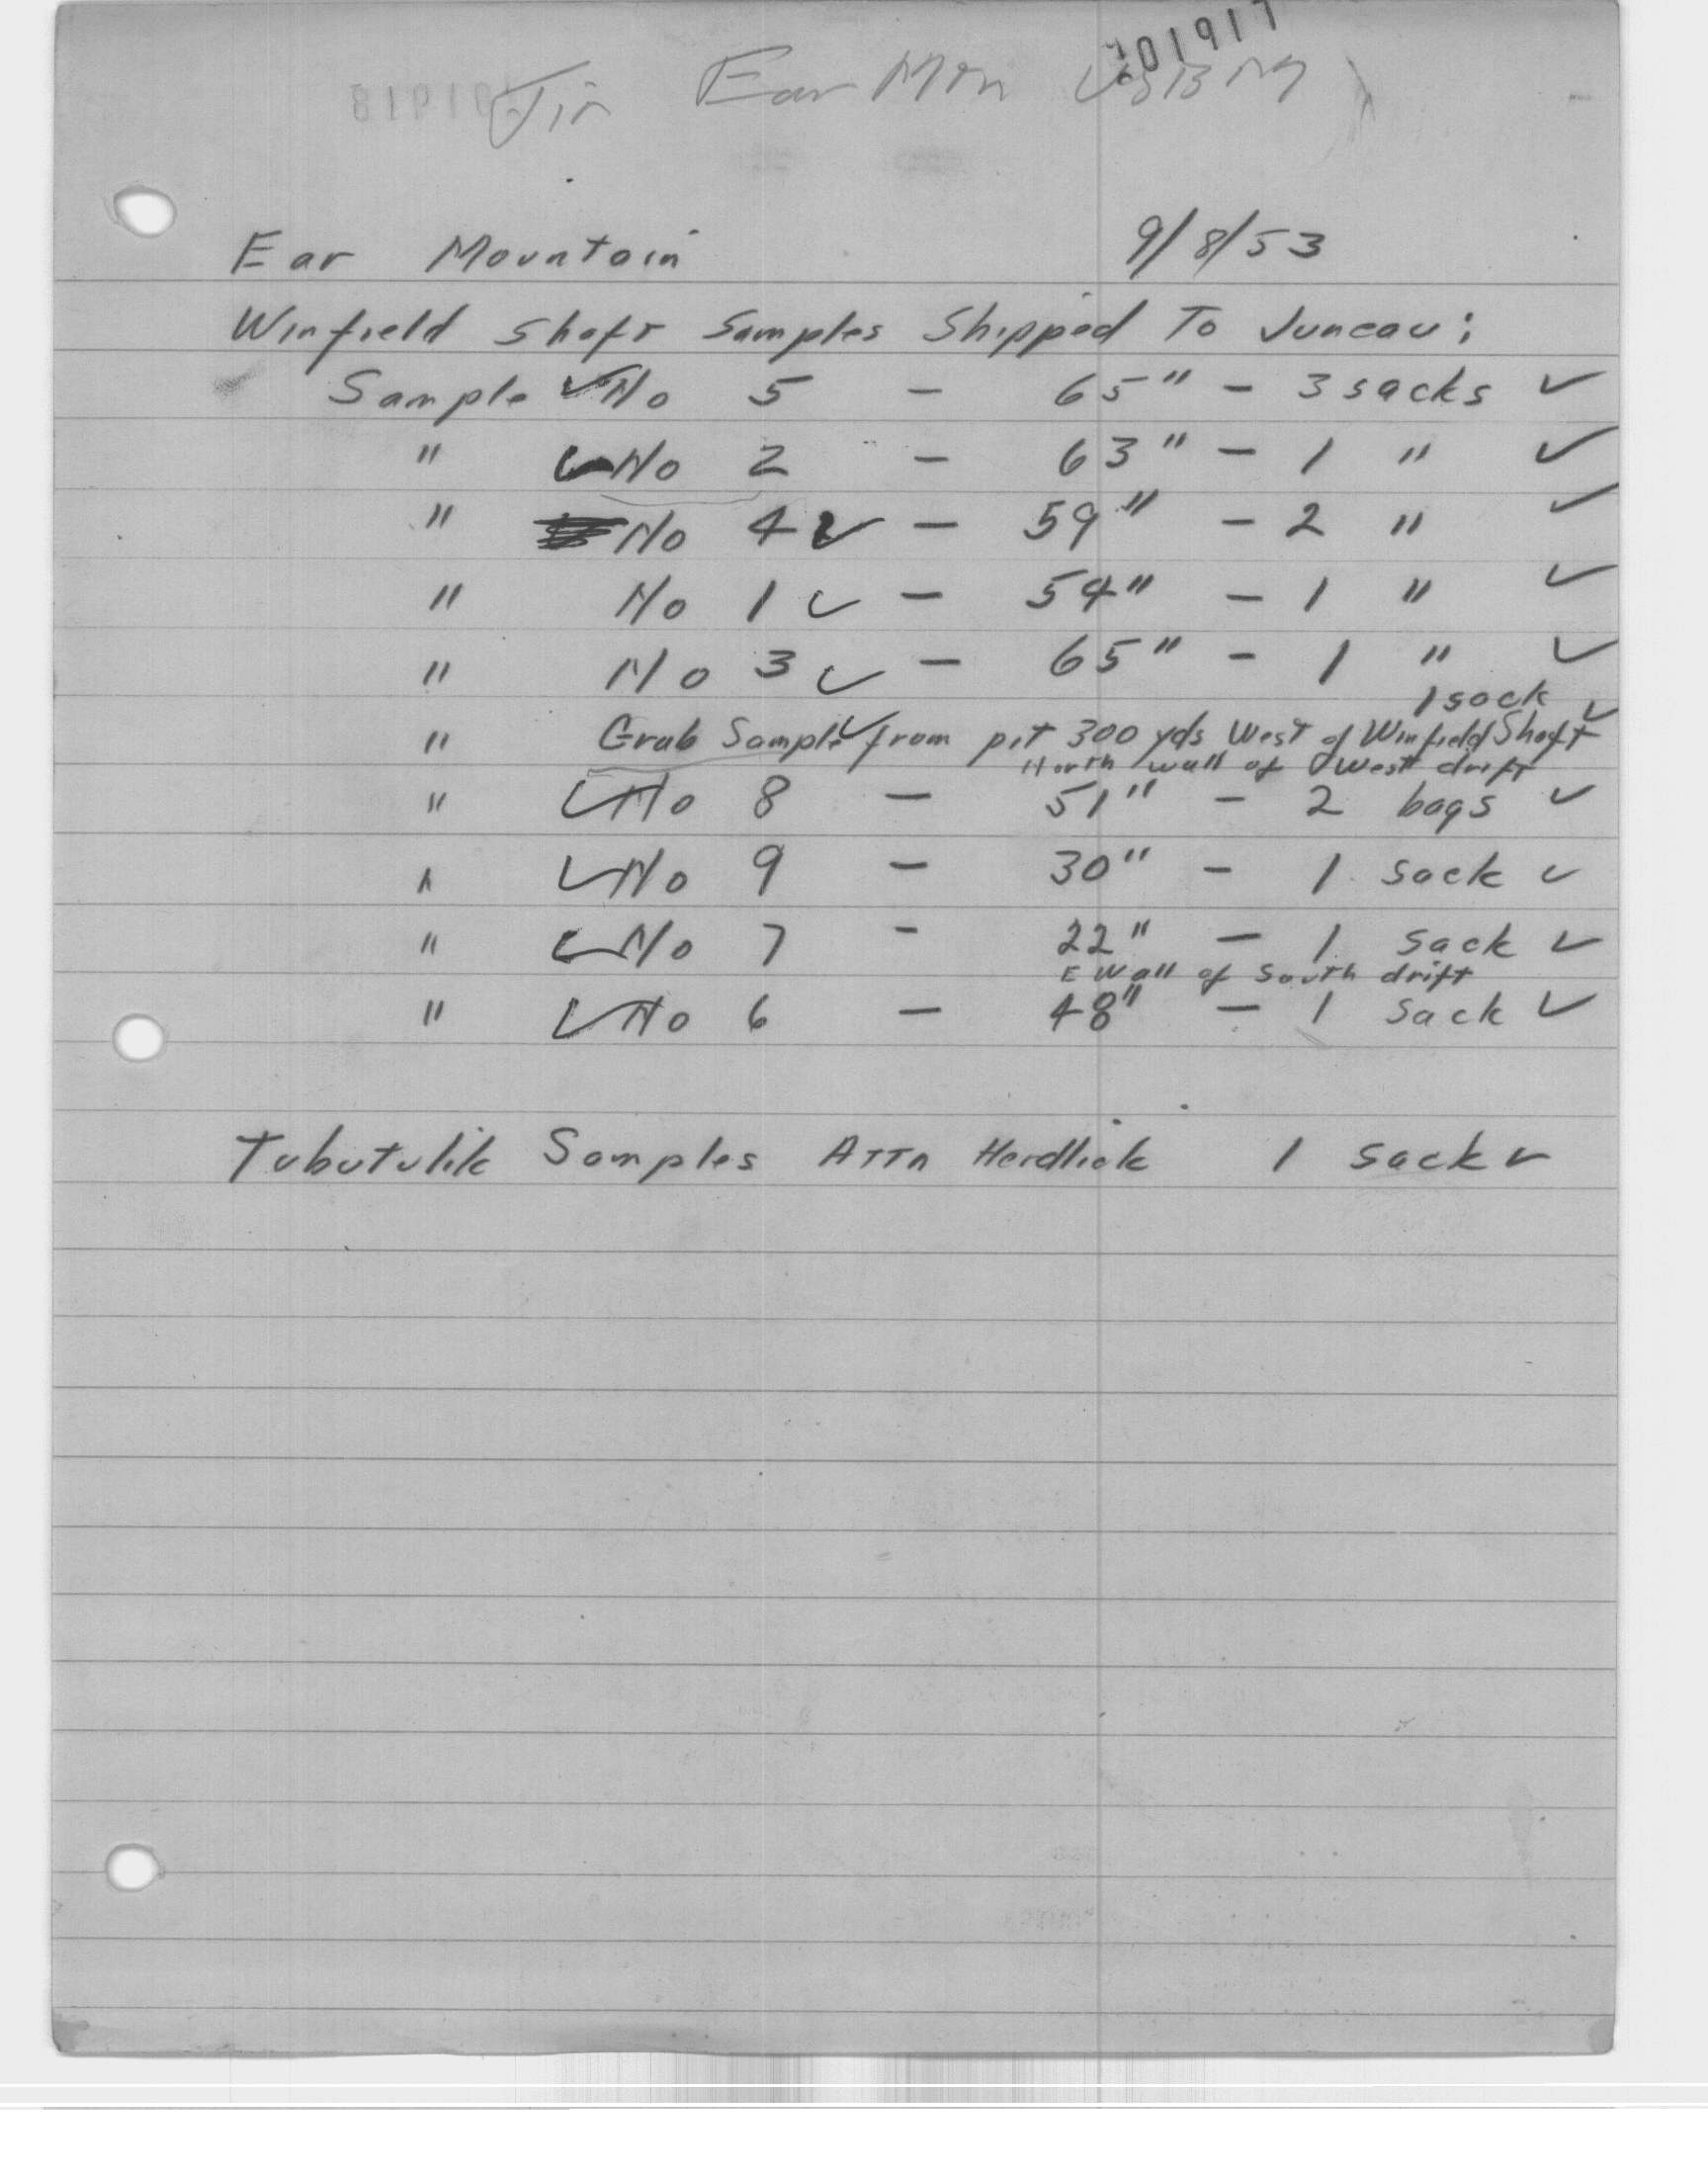 101917
Tin Ear Mtn USBM
Ear Mountain 9/8/53
Winfield Shaft Samples Shipped To Juneau:
Sample ✓ No 5 - 65" - 3 sacks ✓
" ✓ No 2 - 63" - 1 " ✓
" No 4 ✓ - 59" - 2 " ✓
" No 1 ✓ - 54" - 1 " ✓
" No 3 ✓ - 65" - 1 " ✓
1 sack ✓
" Grab Sample ✓ from pit 300 yds West of Winfield Shaft
North wall of West drift
" ✓ No 8 - 51" - 2 bags ✓
" ✓ No 9 - 30" - 1 sack ✓
" ✓ No 7 - 22" - 1 sack ✓
E Wall of South drift
" ✓ No 6 - 48" - 1 sack ✓
Tubutulik Samples Attn Herdlick 1 sack ✓